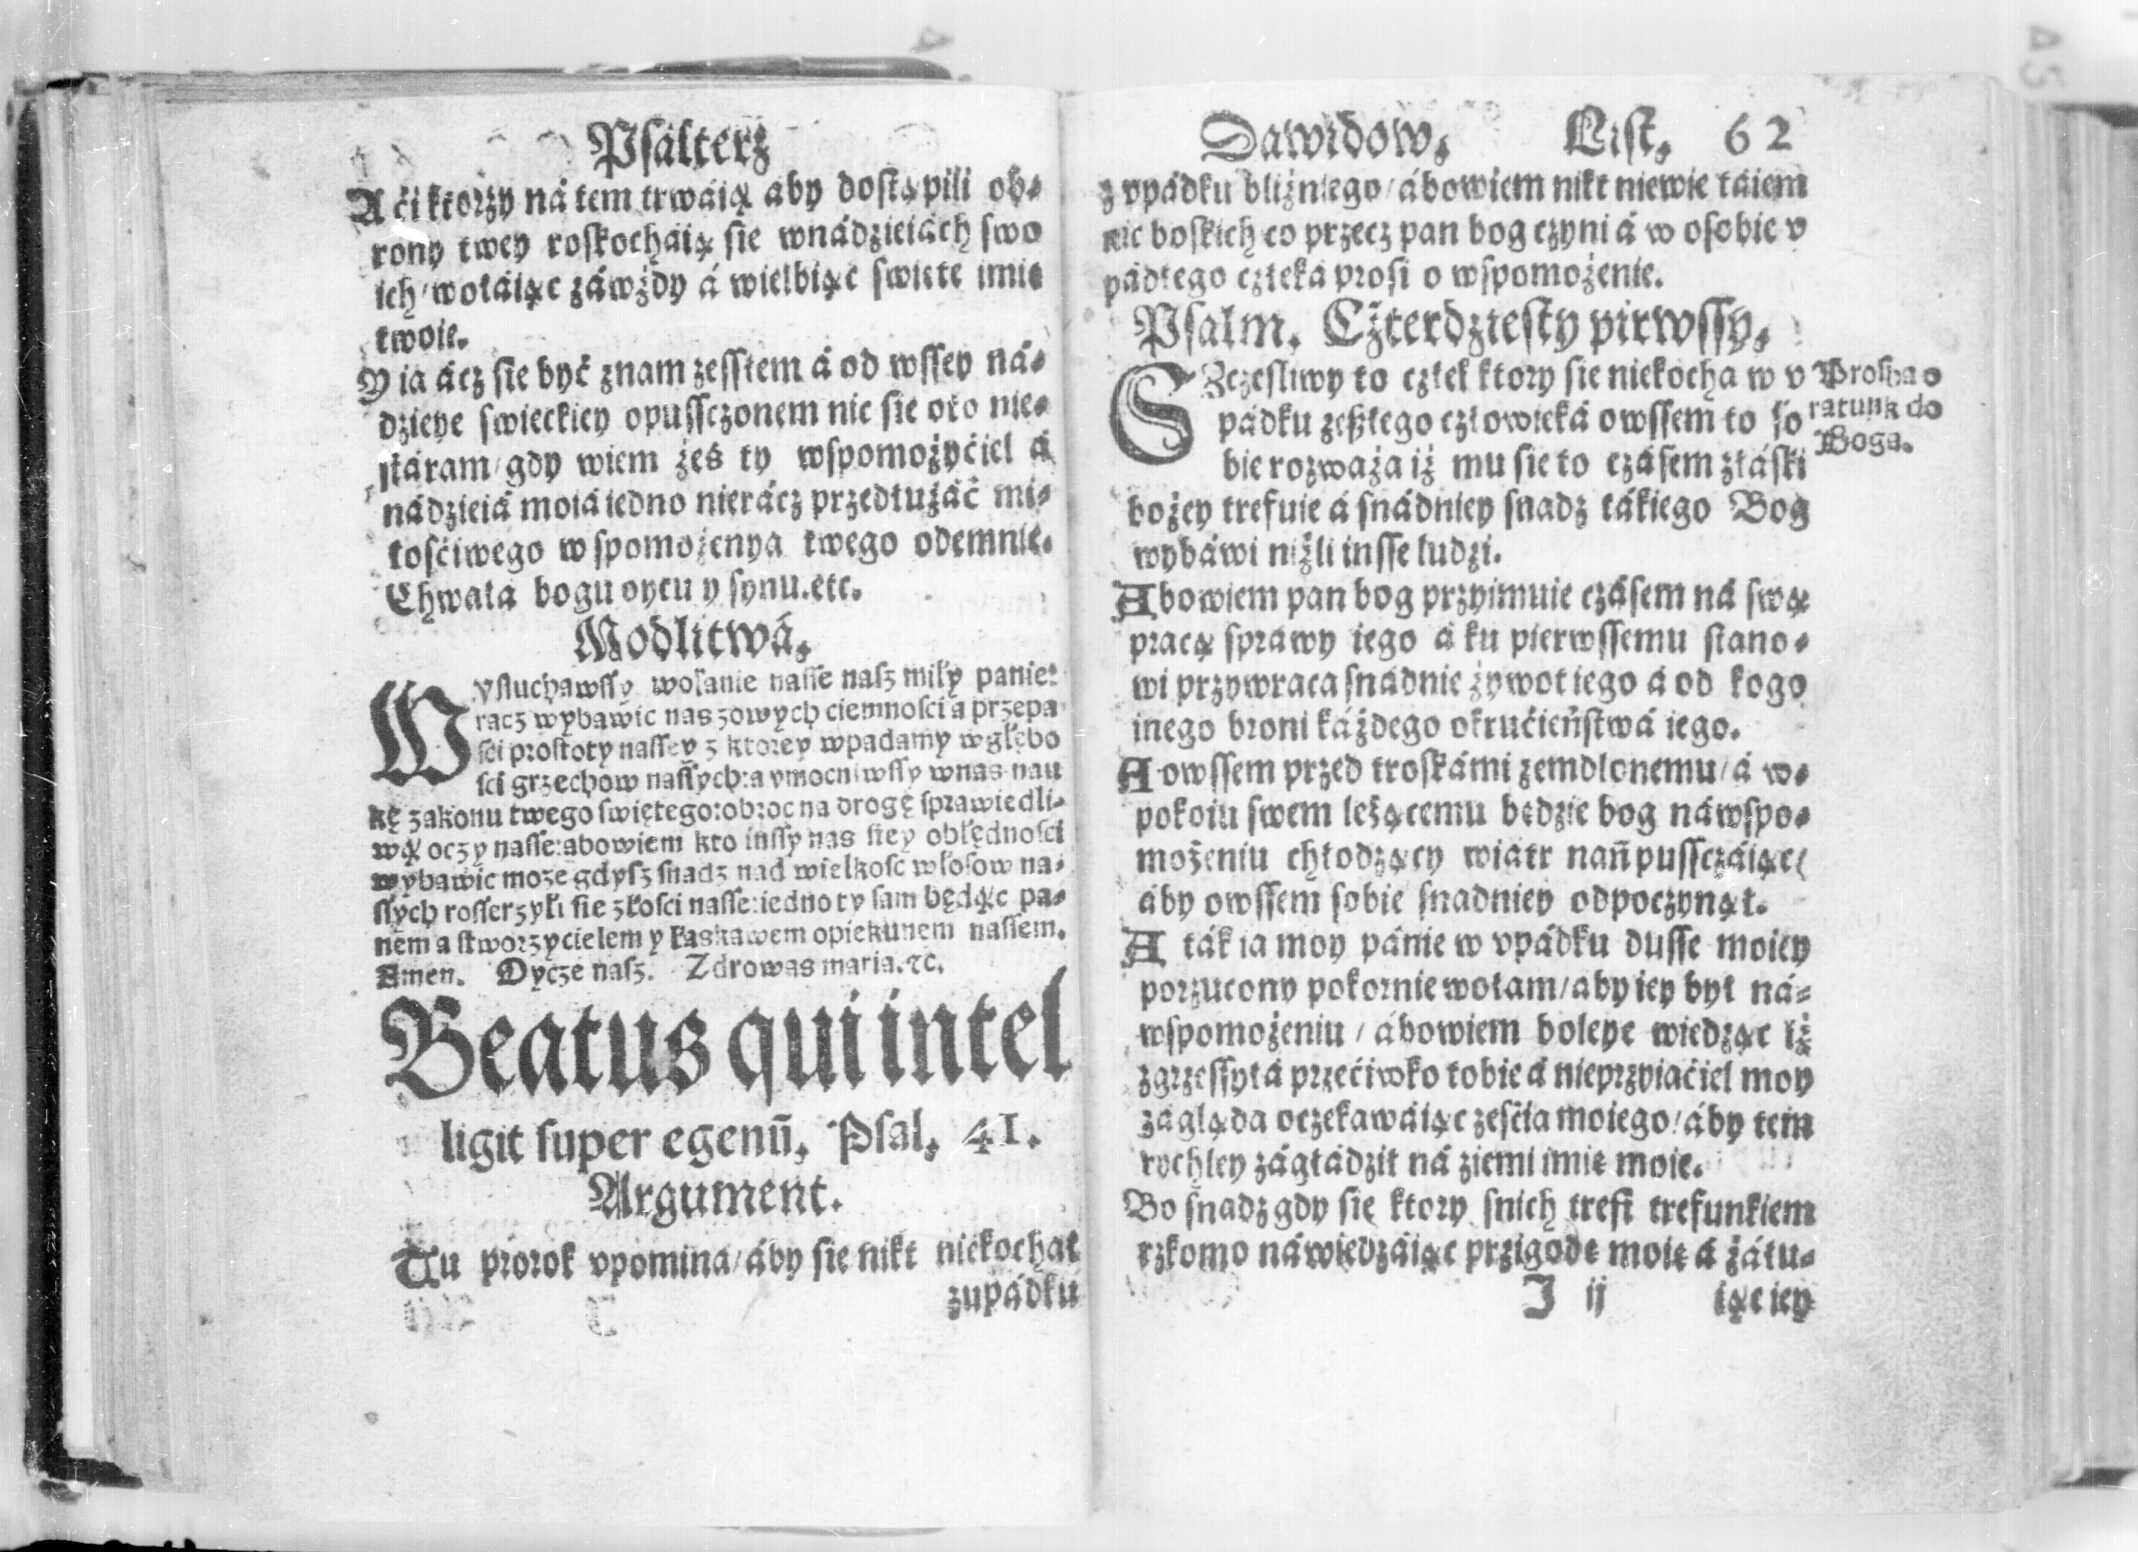 Psálterż
A ći ktorzy ná tem trwáią aby dostąpili ob⸗
rony twey roskocháią sie wnádzieiách swo
ich/ wołáiąc záwżdy á wielbiąc swięte imię
twoie.
Y ia ácz sie być znam zesstem á od wssey ná⸗
dzieye swieckiey opussczonem nic sie oto nie⸗
stáram/ gdy wiem żeś ty wspomożyćiel á
nádzieiá moiá iedno nierácz przedłużáć mi⸗
łośćiwego wspomożenya twego odemnie.
Chwałá bogu oycu y synu. etc.
Modlitwá,
Wysłuchawssy wołanie nasse nasz miły panie:
racz wybawic nas zowych ciemnosci a przepa
sci prostoty nassey z ktorey wpadamy wglębo
sci grzechow nassych: a vmocniwssy wnas nau
kę zakonu twego swiętego: obroc na drogę sprawiedli⸗
wą oczy nasse: abowiem kto inssy nas siey obłędnosci
wybawic moze gdysz snadz nad wielkosc włosow na⸗
ssych rosserzyłi sie złosci nasse: iedno ty sam będąc pa⸗
nem a stworzycielem y łaskawem opiekunem nassem.
Amen. Oycze nasz. Zdrowas maria. ⁊c.
Beatus qui intel
ligit super egenū, Psal, 41.
Argument.
Tu prorok vpomina/ áby sie nikt niekochał
zupádku
Dawidow, List, 62
z vpádku bliźniego/ ábowiem nikt niewie táiem
nic boskich co przecz pan bog czyni á w osobie v
pádłego człeká prosi o wspomożenie.
Psalm, Czterdziesty pirwssy,
SZczesliwy to człek ktory sie niekocha w v
pádku zeszłego człowieká owssem to so
bie rozważa iż mu sie to czásem złáski
bożey trefuie á snádniey snadz tákiego Bog
wybáwi niżli insse ludzi.
Prosba o
ratunk do
Boga.
Abowiem pan bog przyimuie czásem ná swą
pracą sprawy iego á ku pierwssemu stano⸗
wi przywraca snadnie żywot iego á od kogo
inego broni káżdego okrućieństwá iego.
A owssem przed troskámi zemdlonemu/ á w⸗
pokoiu swem leżącemu będzie bog náwspo⸗
możeniu chłodzący wiátr nań pussczáiąc/
áby owssem sobie snadniey odpoczynął.
A ták ia moy pánie w vpádku dusse moiey
porzucony pokornie wołam/ aby iey był ná⸗
wspomożeniu/ ábowiem boleye wiedząc iż
zgrzessyłá przećiwko tobie á nieprzyiaćiel moy
zágląda oczekawáiąc ześćia moiego/ áby tem
rychley zágłádził ná ziemi imię moie.
Bo snadz gdy sie ktory snich trefi trefunkiem
rzkomo náwiedzáiąc przigodę moię á żáłu⸗
J ij iąc iey